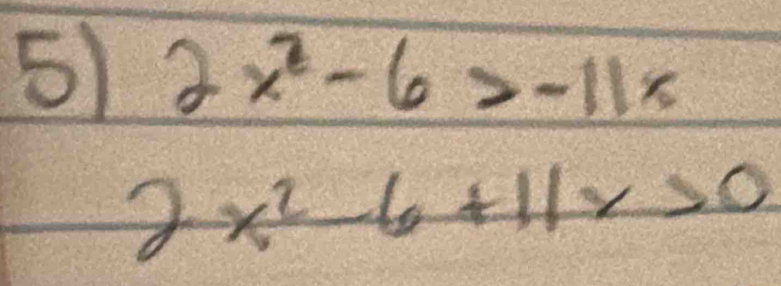 5) 2x² - 6 > -11x
2x² - 6 + 11x > 0